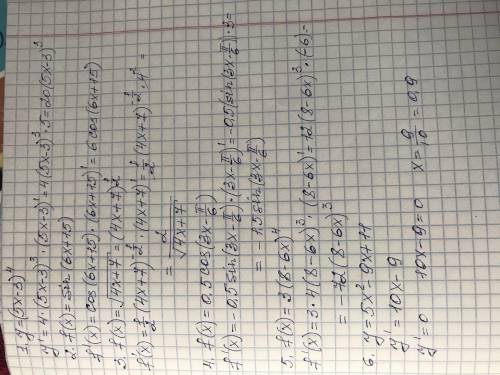 1. y=(5x-3)^4
y'=4·(5x-3)^3·(5x-3)'=4(5x-3)^3·5=20(5x-3)^3
2. f(x)=sin(6x+15)
f'(x)=cos(6x+15)·(6x+15)'=6cos(6x+15)
3. f(x)=√(4x+7)=(4x+7)^(1/2)
f'(x)=1/2(4x+7)^(-1/2)·(4x+7)'=1/2(4x+7)^(-1/2)·4=
=2/√(4x+7)
4. f(x)=0,5cos(3x-π/6)
f'(x)=-0,5sin(3x-π/6)·(3x-π/6)'=-0,5(sin(3x-π/6)·3=
=-1,5sin(3x-π/6)
5. f(x)=3(8-6x)^4
f'(x)=3·4(8-6x)^3·(8-6x)'=12(8-6x)^3·(-6)=
=-72(8-6x)^3
6. y=5x²-9x+11
y'=10x-9
y'=0 10x-9=0 x=9/10=0,9